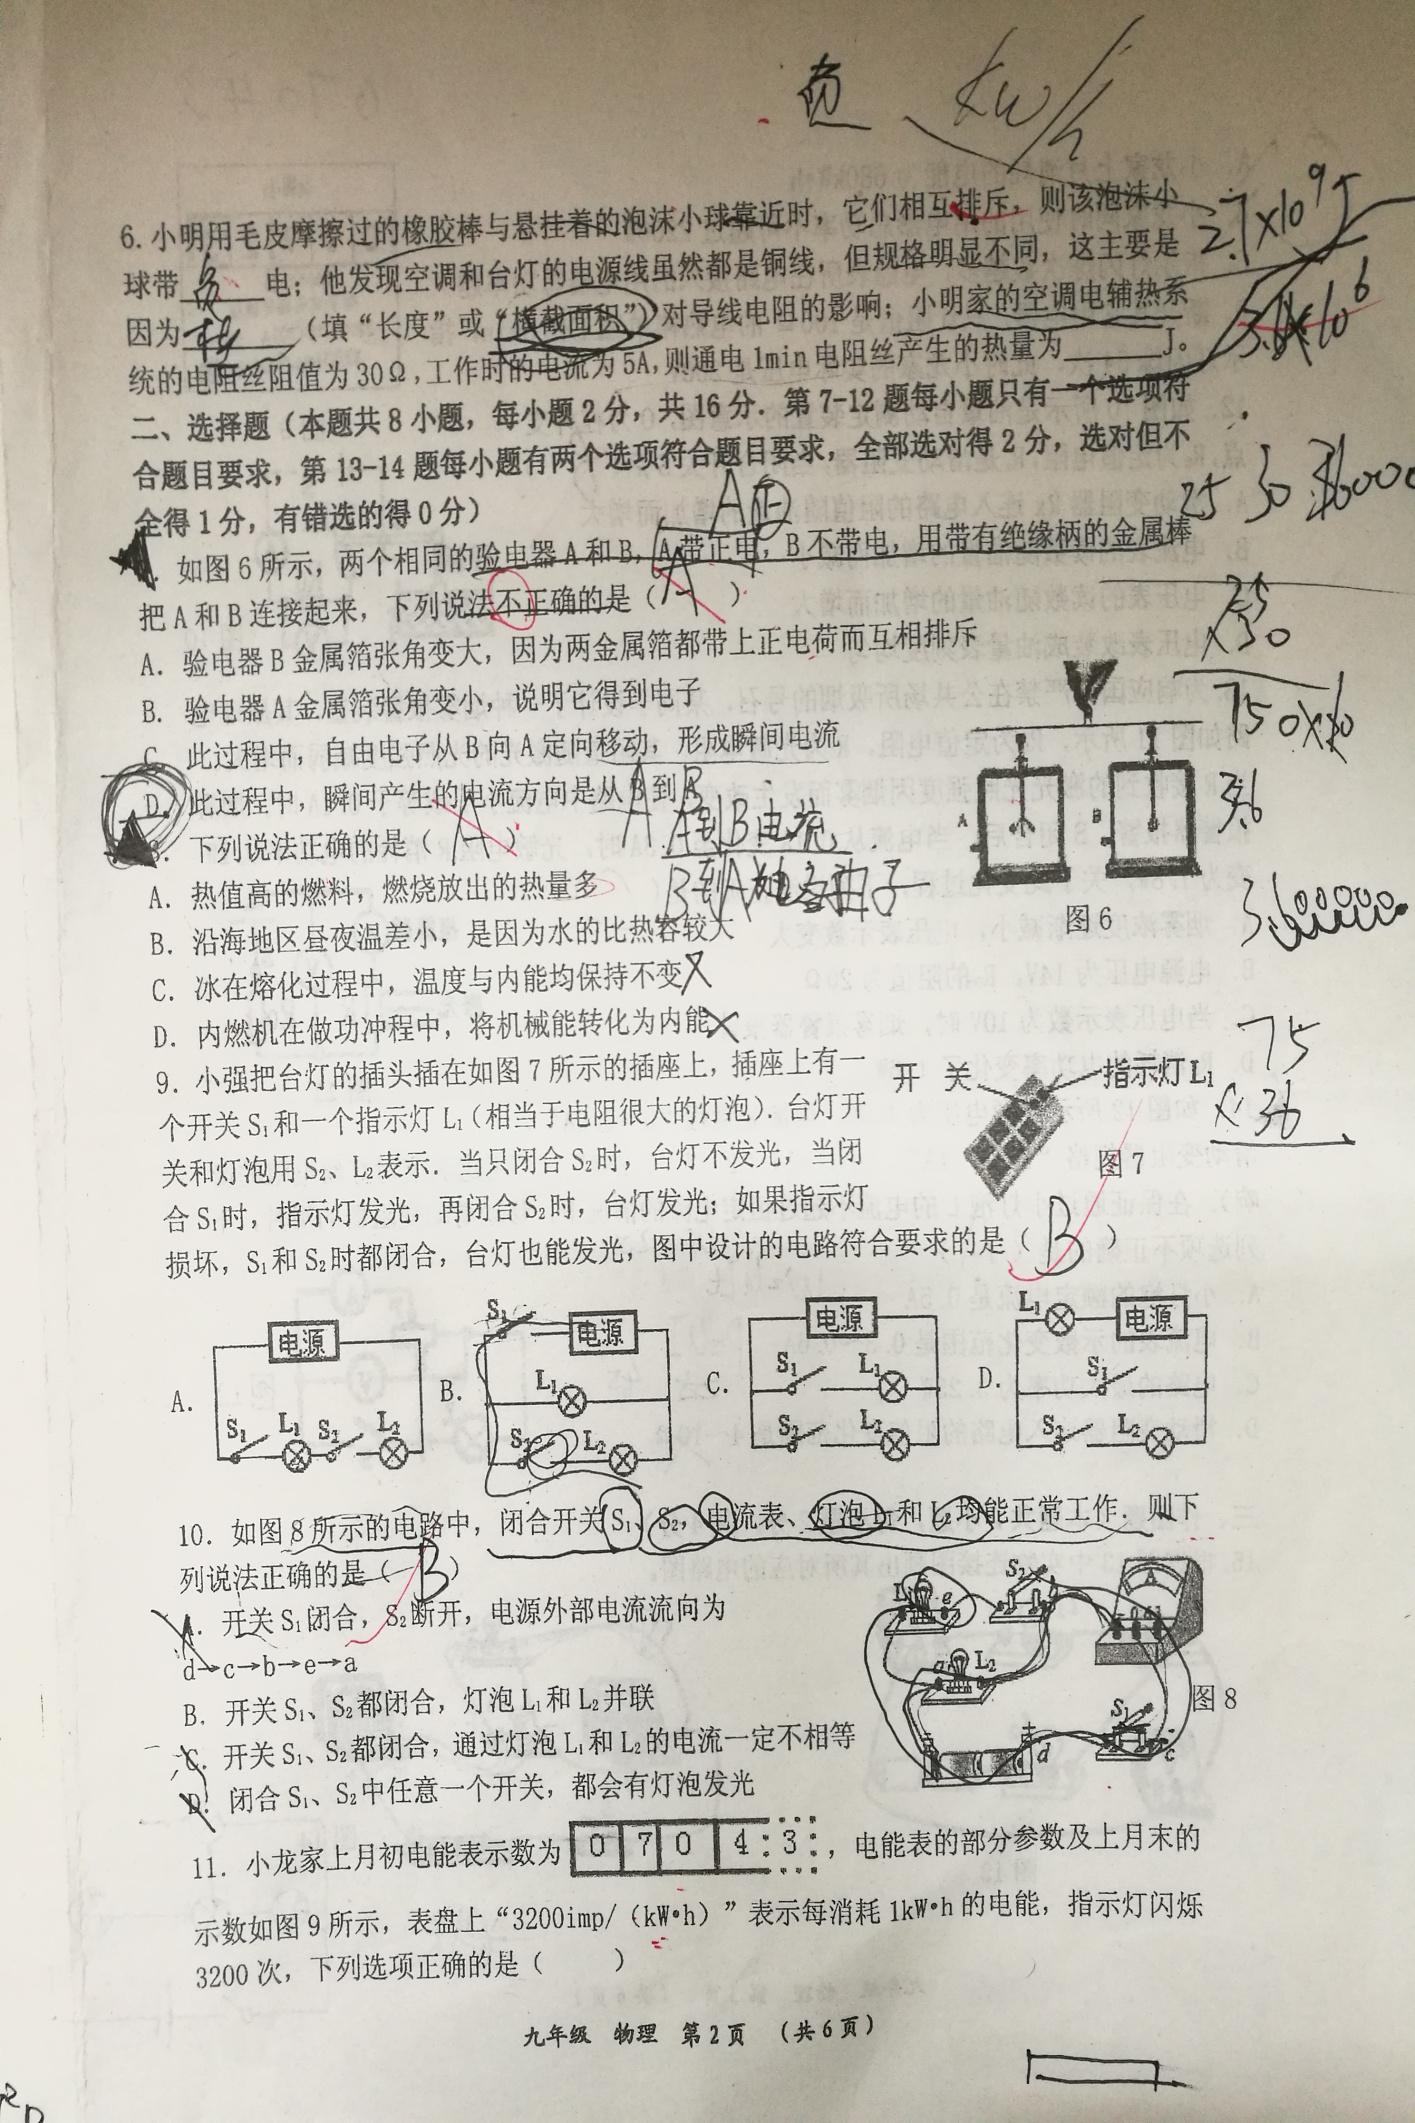 负 kW/h
6.小明用毛皮摩擦过的橡胶棒与悬挂着的泡沫小球靠近时，它们相互排斥，则该泡沫小
球带 负 电；他发现空调和台灯的电源线虽然都是铜线，但规格明显不同，这主要是
2.7×10⁹J
因为 横 （填“长度”或“横截面积”）对导线电阻的影响；小明家的空调电辅热系
3.6×10⁶
统的电阻丝阻值为30Ω,工作时的电流为5A,则通电1min电阻丝产生的热量为______J。
二、选择题（本题共8小题，每小题2分，共16分．第7-12题每小题只有一个选项符
合题目要求，第13-14题每小题有两个选项符合题目要求，全部选对得2分，选对但不
全得1分，有错选的得0分）
A正
25 30
. 如图6所示，两个相同的验电器A和B，A带正电，B不带电，用带有绝缘柄的金属棒
把A和B连接起来，下列说法不正确的是（ A ）
×30
A. 验电器B金属箔张角变大，因为两金属箔都带上正电荷而互相排斥
B. 验电器A金属箔张角变小，说明它得到电子
750×
C. 此过程中，自由电子从B向A定向移动，形成瞬间电流
D. 此过程中，瞬间产生的电流方向是从B到A
A B
A到B电流
3.6
8. 下列说法正确的是（ A ）
B到A 电子
A. 热值高的燃料，燃烧放出的热量多
图6
B. 沿海地区昼夜温差小，是因为水的比热容较大
C. 冰在熔化过程中，温度与内能均保持不变×
D. 内燃机在做功冲程中，将机械能转化为内能×
75
×36
9. 小强把台灯的插头插在如图7所示的插座上，插座上有一
开 关 指示灯L₁
个开关S₁和一个指示灯L₁（相当于电阻很大的灯泡）．台灯开
关和灯泡用S₂、L₂表示．当只闭合S₂时，台灯不发光，当闭
图7
合S₁时，指示灯发光，再闭合S₂时，台灯发光；如果指示灯
损坏，S₁和S₂时都闭合，台灯也能发光，图中设计的电路符合要求的是（ B ）
A. 电源 S₁ L₁ S₂ L₂
B. S₁ 电源 L₁ S₂ L₂
C. 电源 S₁ L₁ S₂ L₂
D. L₁ 电源 S₁ S₂ L₂
10. 如图8所示的电路中，闭合开关S₁、S₂，电流表、灯泡L₁和L₂均能正常工作．则下
列说法正确的是（ B ）
A. 开关S₁闭合，S₂断开，电源外部电流流向为
d→c→b→e→a
B. 开关S₁、S₂都闭合，灯泡L₁和L₂并联
C. 开关S₁、S₂都闭合，通过灯泡L₁和L₂的电流一定不相等
D. 闭合S₁、S₂中任意一个开关，都会有灯泡发光
L₁ e S₂ b A
a L₂
S₁ d c
图8
11. 小龙家上月初电能表示数为 0 7 0 4 3 ，电能表的部分参数及上月末的
示数如图9所示，表盘上“3200imp/（kW•h）”表示每消耗1kW•h的电能，指示灯闪烁
3200次，下列选项正确的是（ ）
九年级 物理 第2页 （共6页）